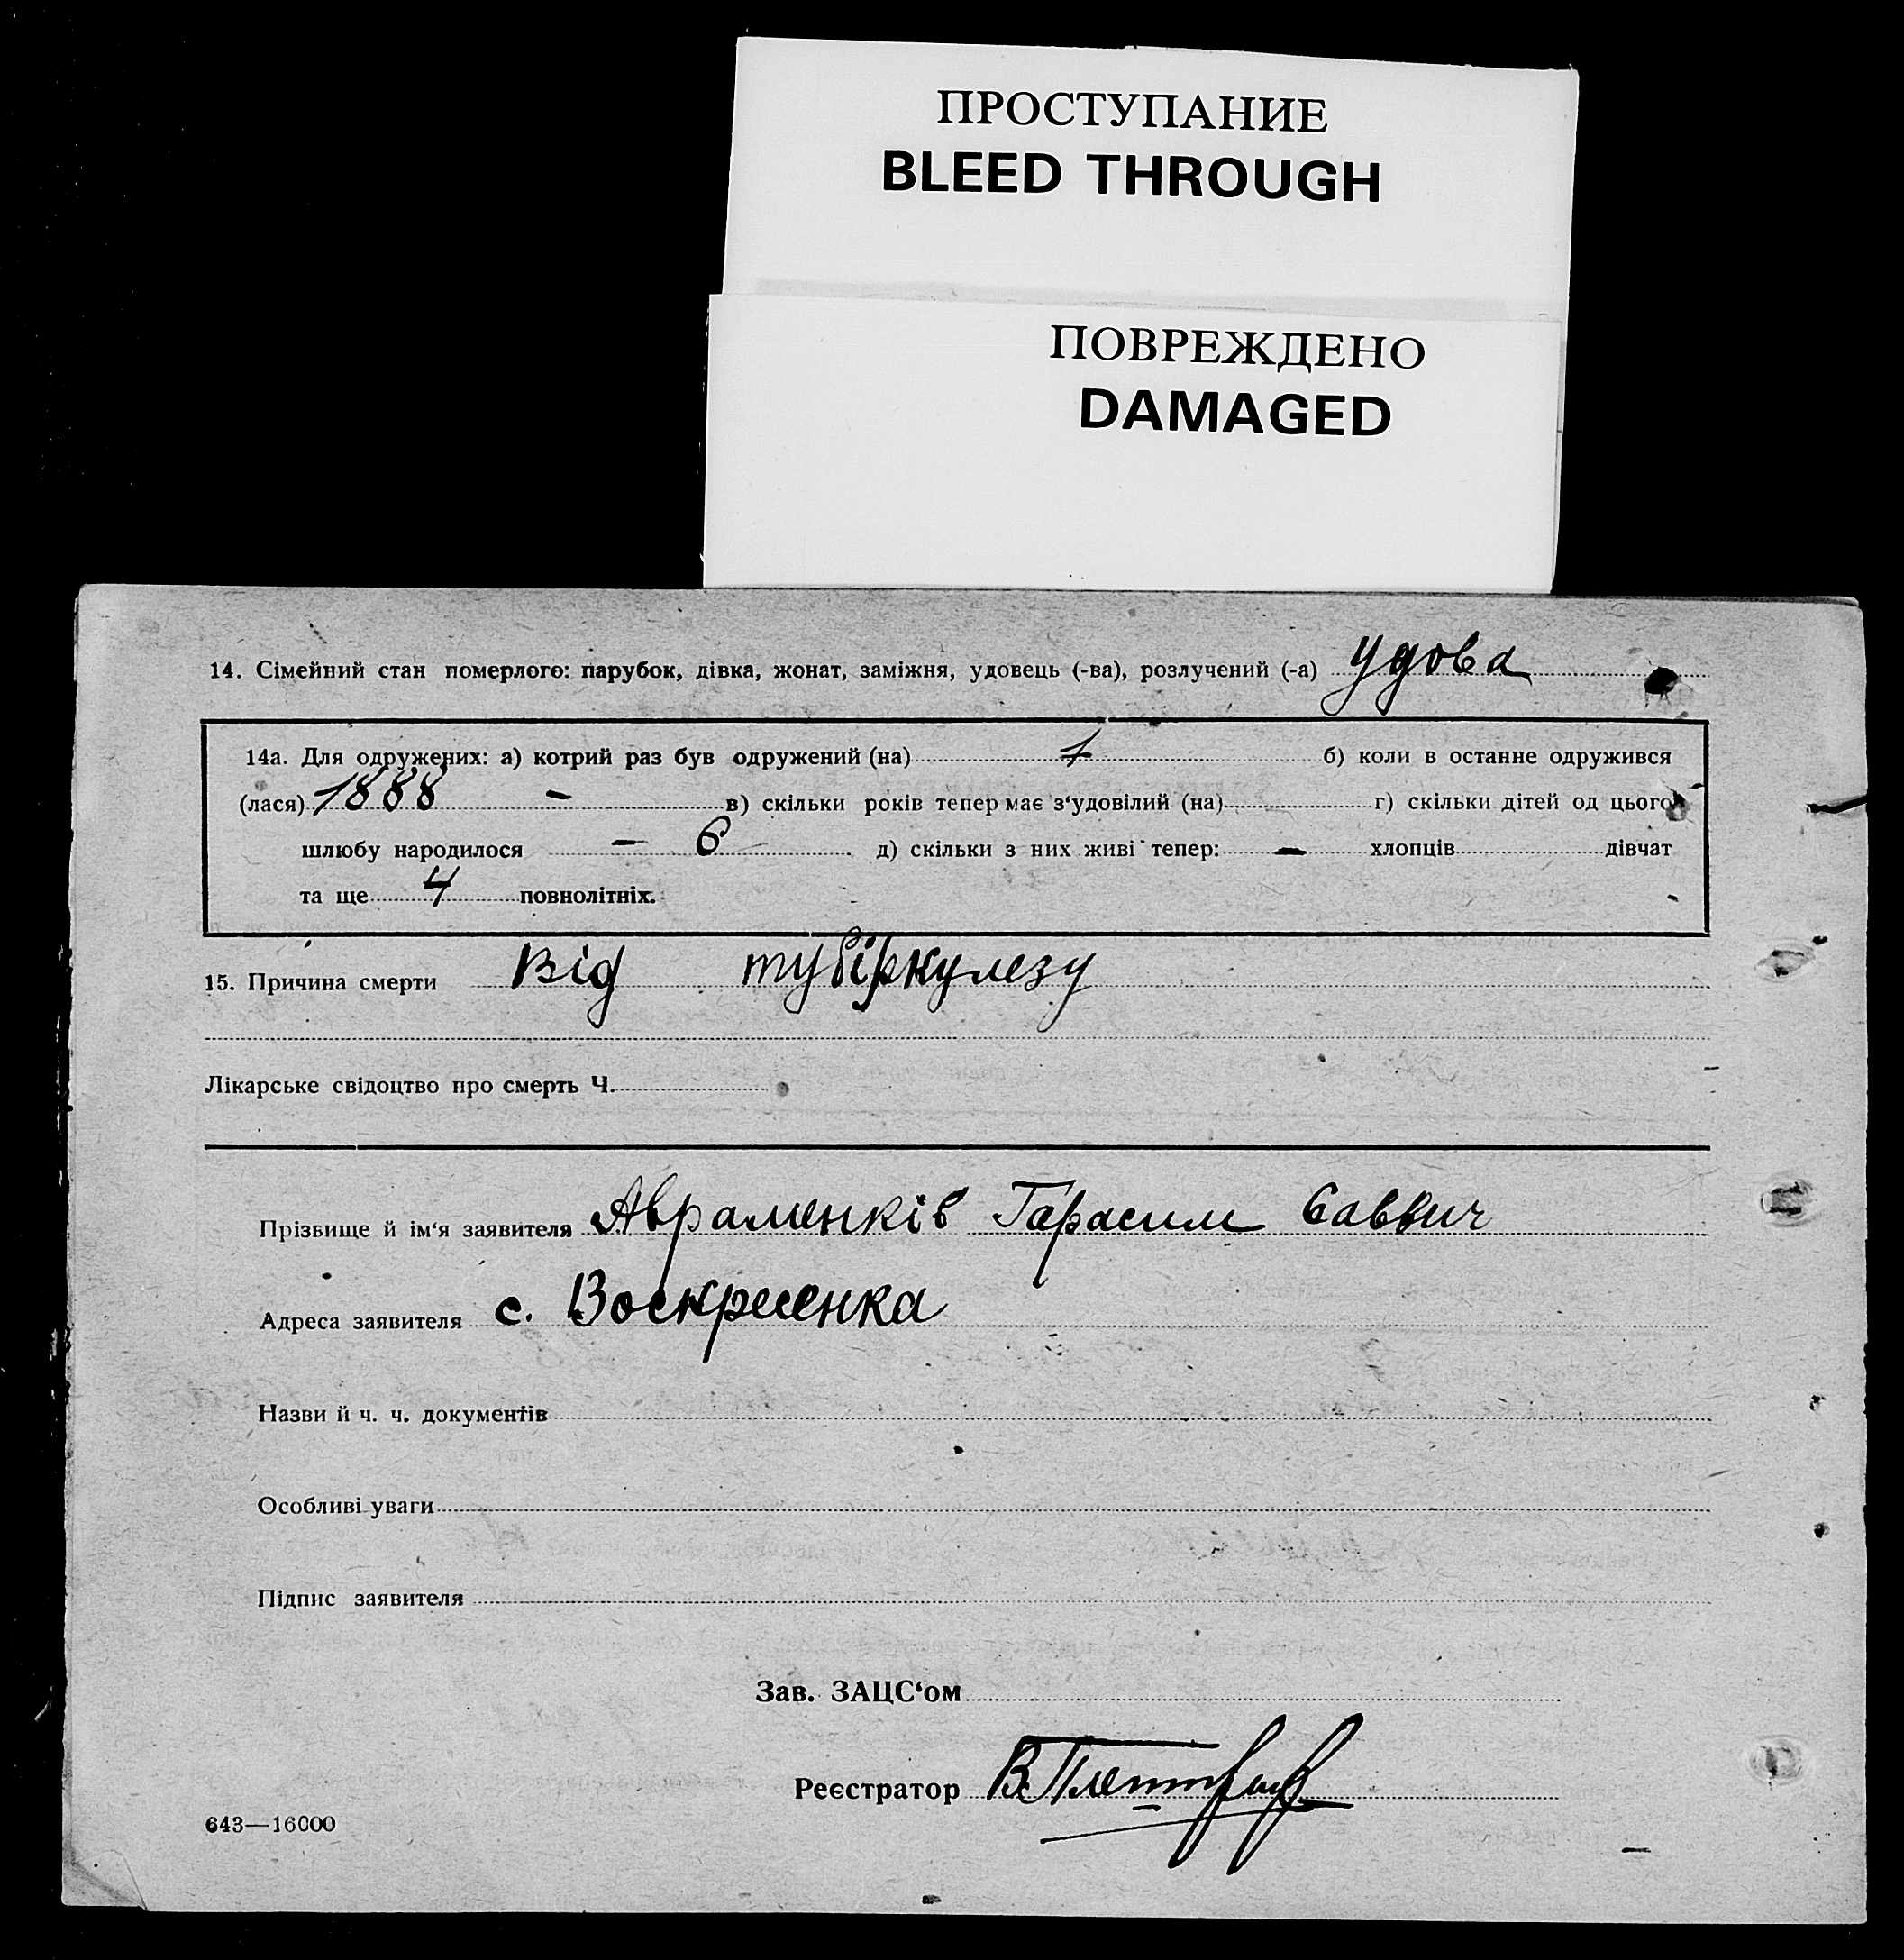 ПРОСТУПАНИЕ
BLEED THROUGH
ПОВРЕЖДЕНО
DAMAGED
14. Сімейний стан померлого: парубок, дівка, жонат, заміжня, удовець (-ва), розлучений (-а) удова
14а. Для одружених: а) котрий раз був одружений (на) 1 б) коли в останне одружився
(лася) 1888 – в) скільки років тепер має з‘удовілий (на) г) скільки дітей од цього
шлюбу народилося – 6 д) скільки з них живі тепер: – хлопців дівчат
та ще 4 повнолітніх.
15. Причина смерти Від тубіркулезу
Лікарське свідоцтво про смерть Ч.
Прізвище й ім‘я заявителя Авраменків Гарасим Саввич
Адреса заявителя с. Воскресенка
Назви й ч. ч. документів
Особливі уваги
Підпис заявителя
Зав. ЗАЦС‘ом
Реєстратор В.
643—16000